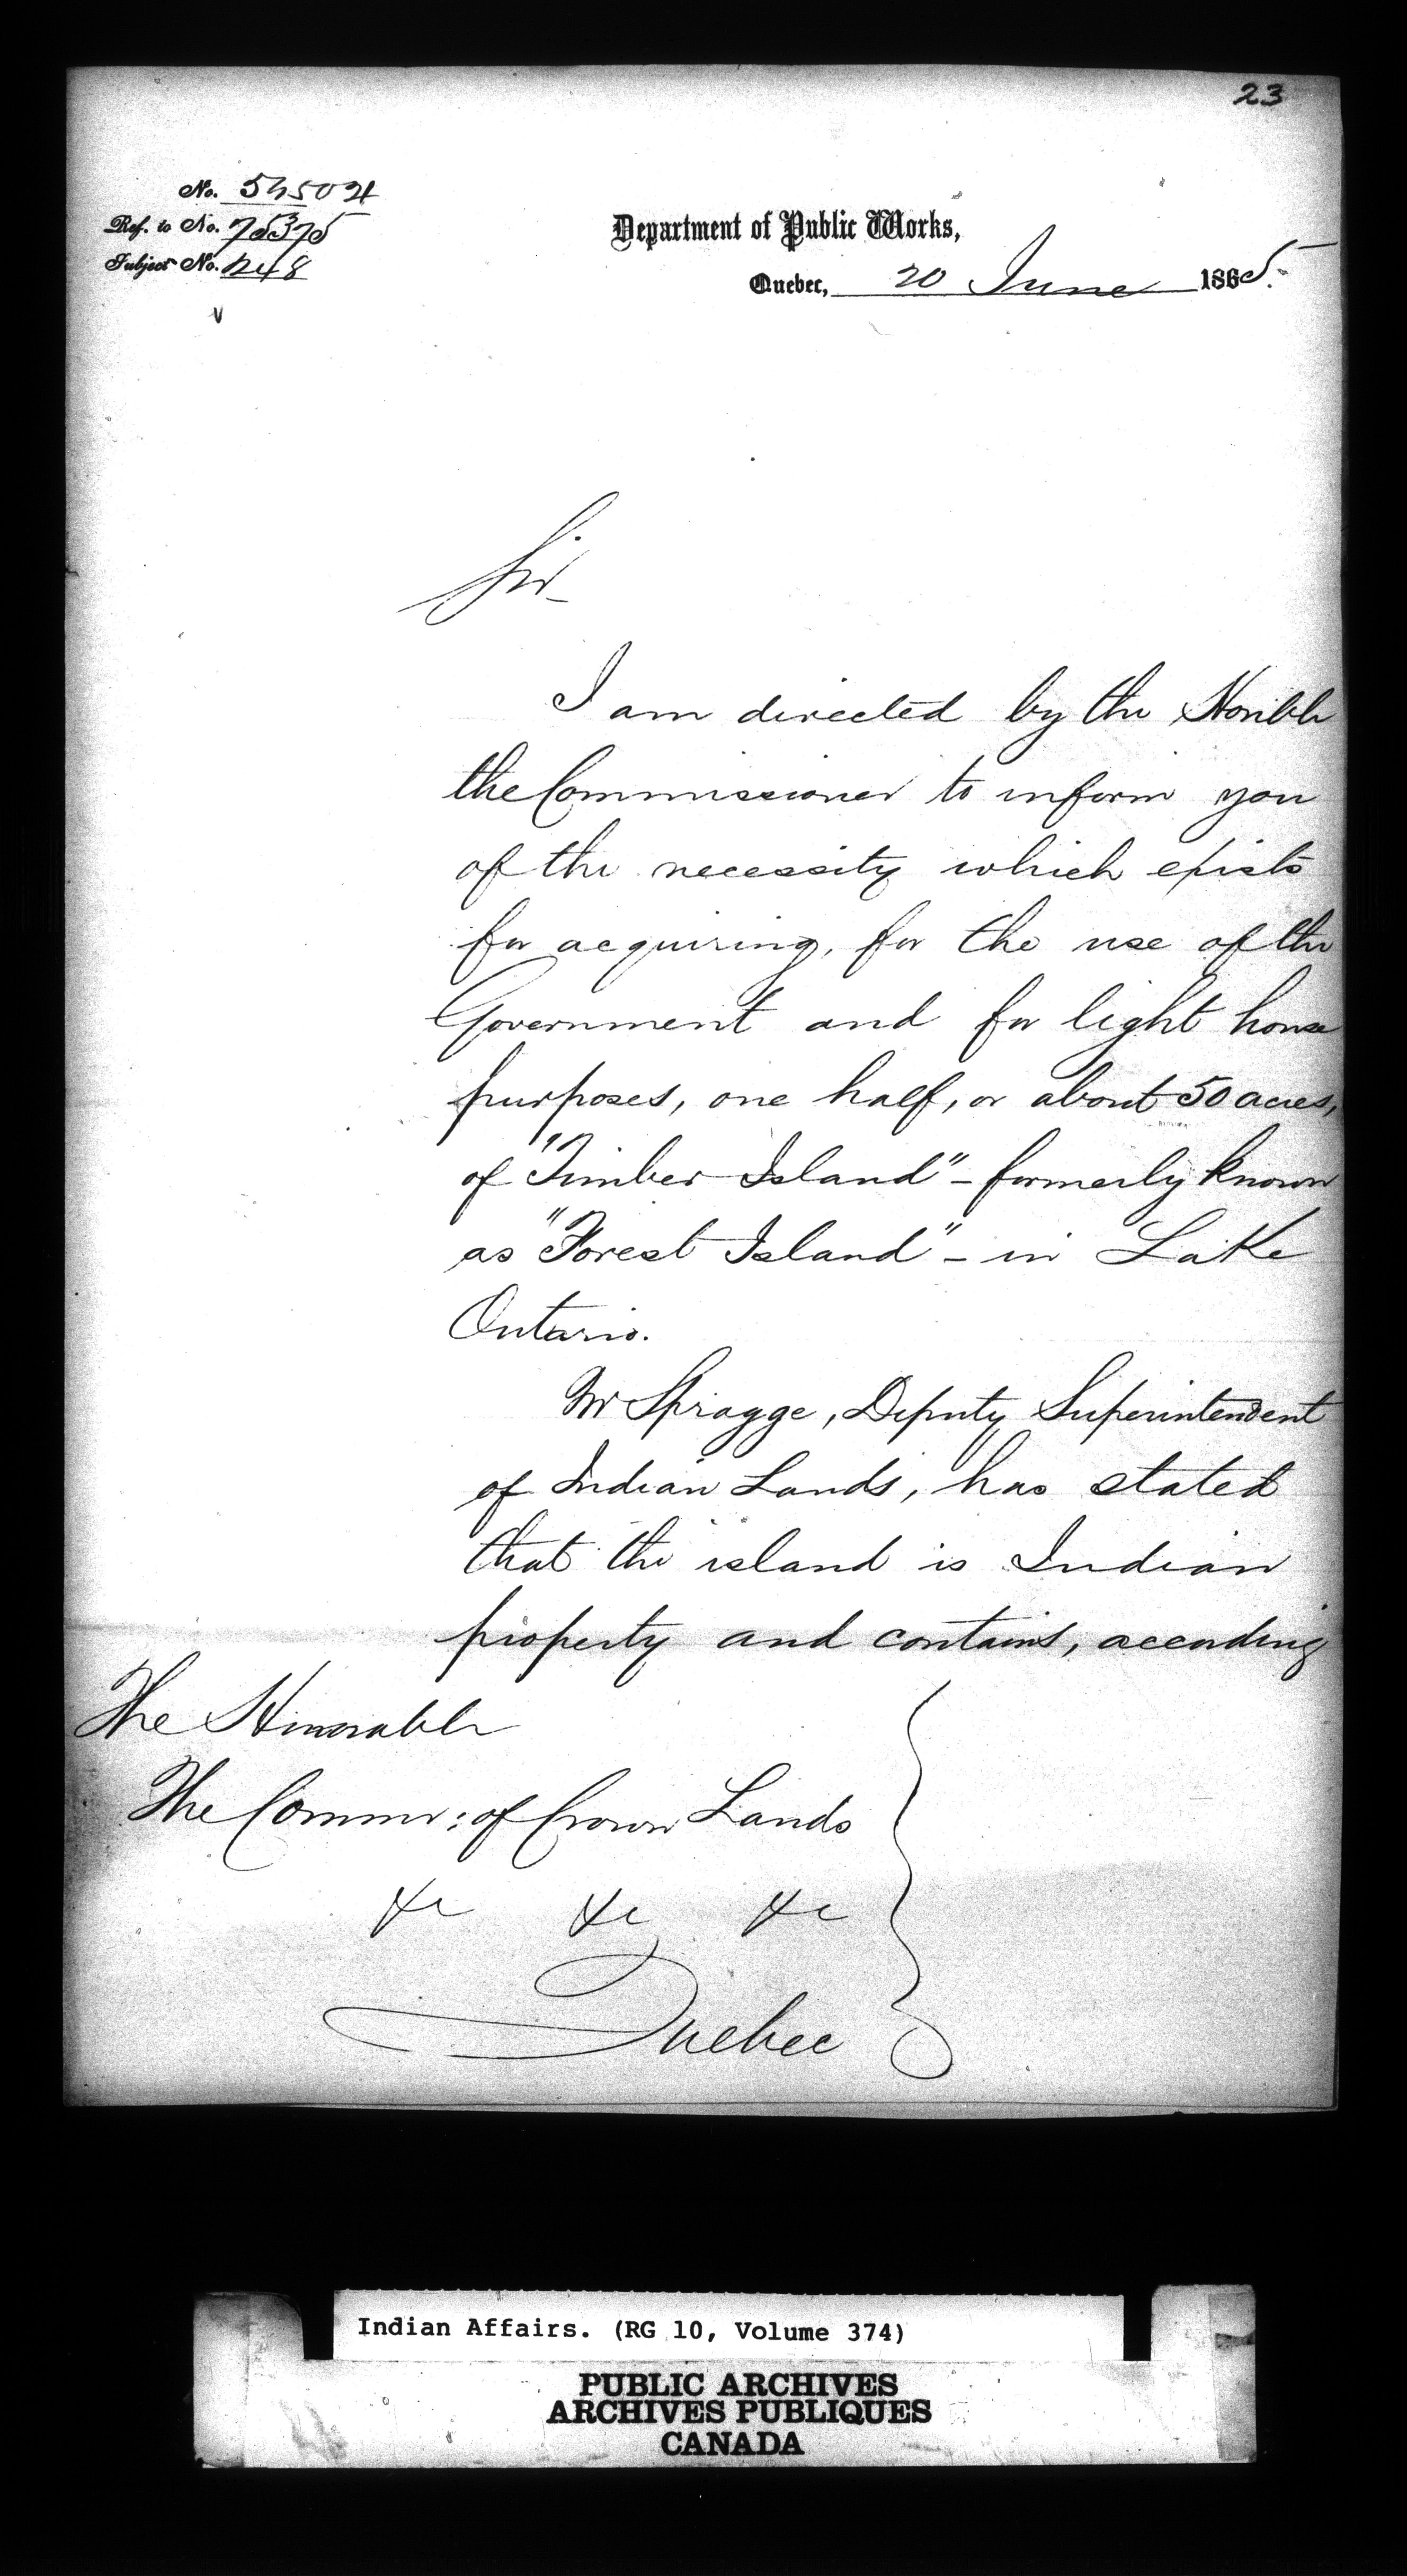 23
No. 54504
Ref. to No. 75375
Subject No. 248
Department of Public Works,
Quebec, 20 June 1865.
Sir
I am directed by the Honble
the Commissioner to inform you
of the necessity which exists
for acquiring, for the use of the
Government and for light house
purposes, one half, or about 50 acres,
of "Timber Island" - formerly known
as "Forest Island" - in Lake
Ontario.
Mr Spragge, Deputy Superintendent
of Indian Lands, has stated
that the island is Indian
property and contains, according
The Honorable
The Commr: of Crown Lands
&c &c &c
Quebec
Indian Affairs. (RG 10, Volume 374)
PUBLIC ARCHIVES
ARCHIVES PUBLIQUES
CANADA